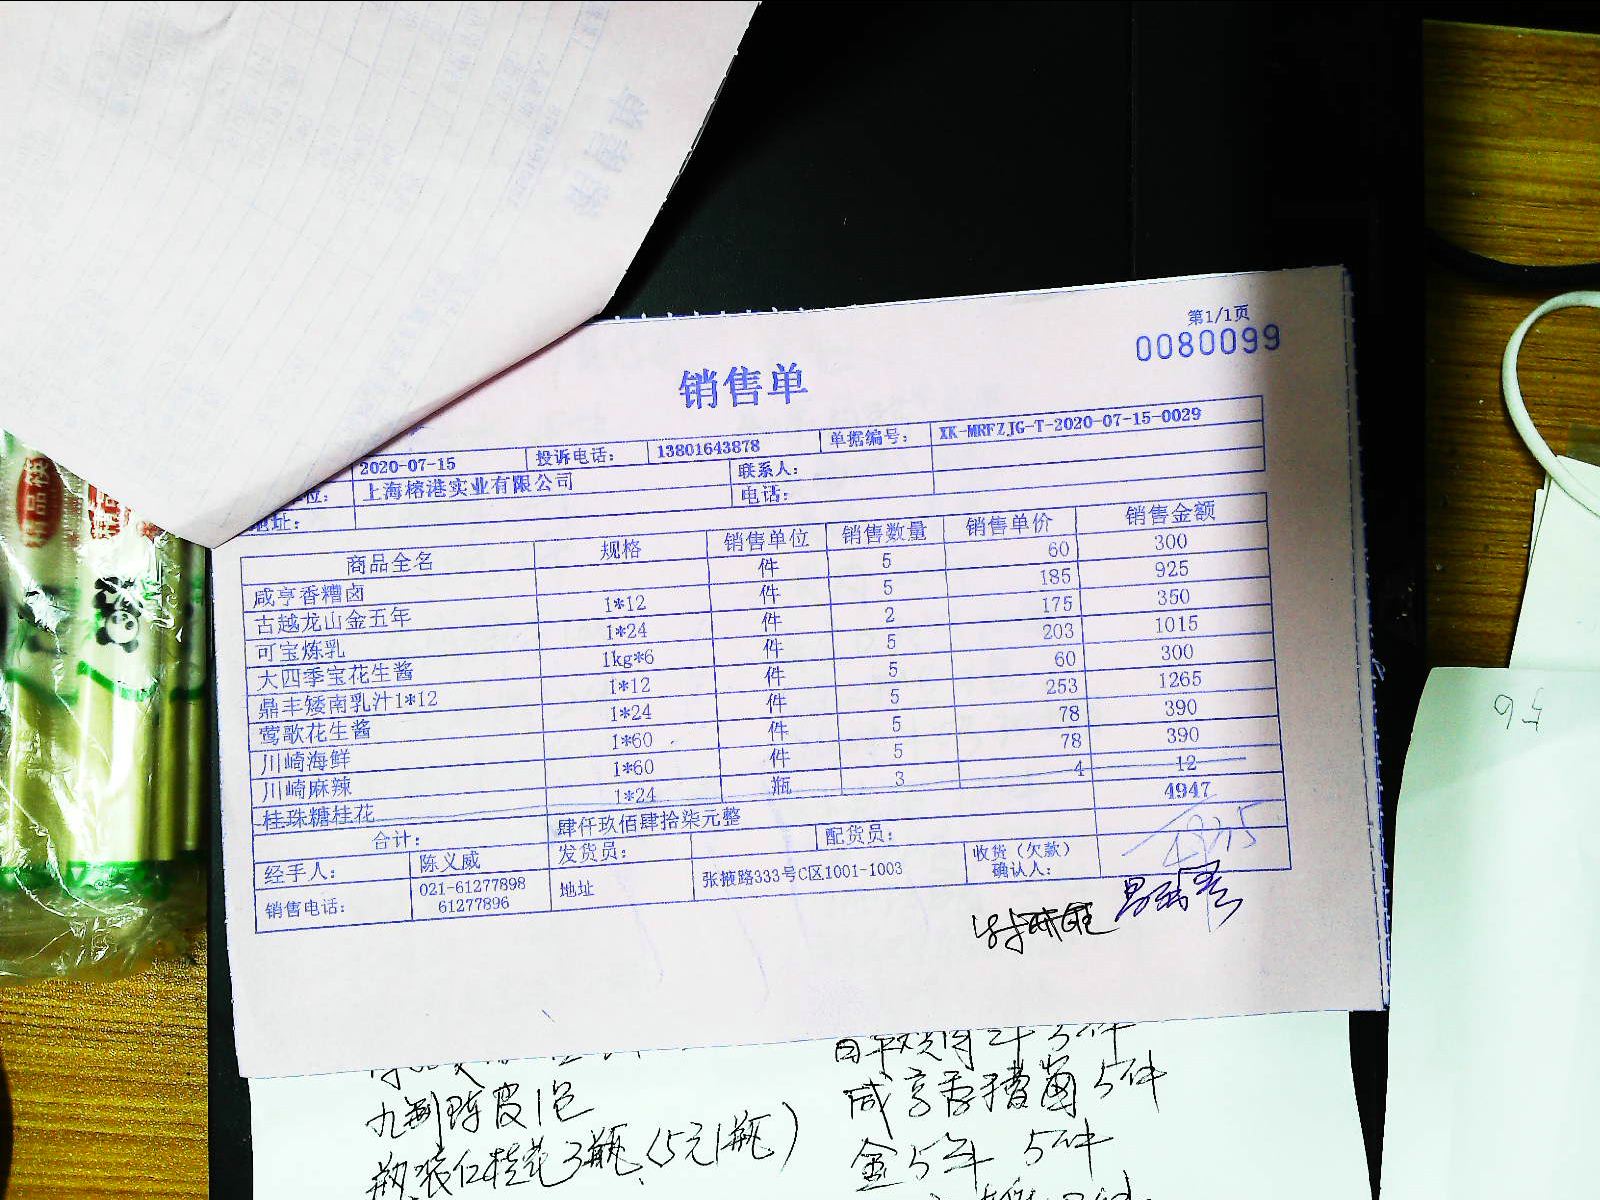 第1/1页
0080099
销售单
2020-07-15 投诉电话: 13801643878 单据编号: XK-MRFZJG-T-2020-07-15-0029
位: 上海榕港实业有限公司 联系人:
地址: 电话:
商品全名 规格 销售单位 销售数量 销售单价 销售金额
咸亨香糟卤 件 5 60 300
古越龙山金五年 1*12 件 5 185 925
可宝炼乳 1*24 件 2 175 350
大四季宝花生酱 1kg*6 件 5 203 1015
鼎丰矮南乳汁1*12 1*12 件 5 60 300
莺歌花生酱 1*24 件 5 253 1265
川崎海鲜 1*60 件 5 78 390
川崎麻辣 1*60 件 5 78 390
桂珠糖桂花 1*24 瓶 3 4 12
合计: 肆仟玖佰肆拾柒元整 4947
经手人: 陈义威 发货员: 配货员: 收货（欠款）确认人:
销售电话: 021-61277898 61277896 地址 张掖路333号C区1001-1003
九制陈皮1包
咸亨香糟卤 5件
金5年 5件